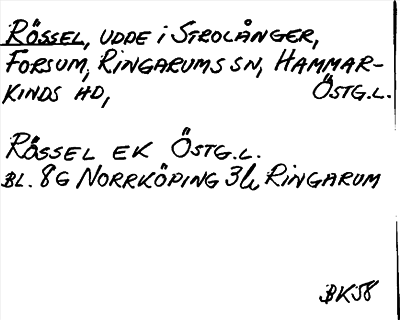 RÖSSEL, UDDE I STROLÅNGER,
FORSUM, RINGARUMS SN, HAMMAR-
KINDS HD, ÖSTG.L.
RÖSSEL EK ÖSTG.L.
BL. 8G NORRKÖPING 3h RINGARUM
BK58